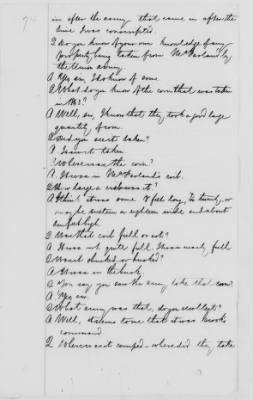 in after the army that came in after the
time I was conscripted.
Q Do you know of your own knowledge of any
property being taken from McFarland by
the Union army
A Yes sir, I do know of some
Q What do you know of the corn that was taken
in 1863?
A Well, sir, I know that they took a good large
quantity from
Q Did you see it taken?
A I saw it taken
Q Where was the corn?
A It was in McFarland's crib.
Q How large a crib was it?
A I think it was some 8 feet long, to twenty, or
may be sixteen or eighteen wide and about
feet high
Q Was that crib full or not?
A It was not quite full. It was nearly full
Q Was it shucked or husked?
A It was in the husk.
Q You say you saw the army take that corn
A Yes sir.
Q What army was that, do you recollect?
A Well, it seems to me that it was
command
Q Where was it camped - where did they take